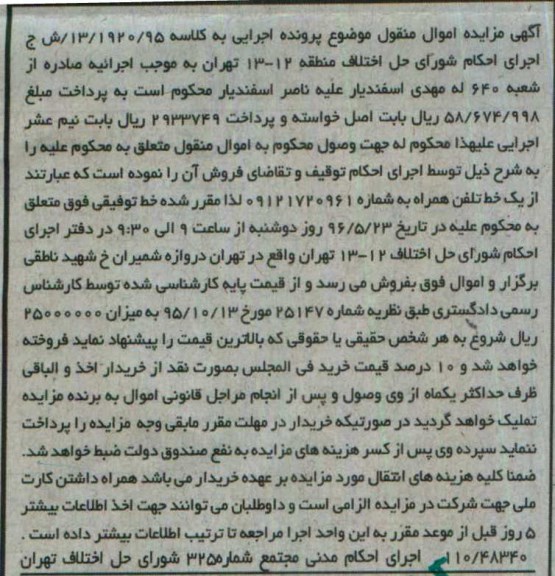 آگهی مزایده اموال منقول موضوع پرونده اجرایی به کلاسه ۱۳/۱۹۲۰/۹۵/ش ج
اجرای احکام شورای حل اختلاف منطقه ۱۲-۱۳ تهران به موجب اجرائیه صادره از
شعبه ۶۴۰ له مهدی اسفندیار علیه ناصر اسفندیار محکوم است به پرداخت مبلغ
۵۸/۶۷۴/۹۹۸ ریال بابت اصل خواسته و پرداخت ۲۹۳۳۷۴۹ ریال بابت نیم عشر
اجرایی علیهذا محکوم له جهت وصول محکوم به اموال منقول متعلق به محکوم علیه را
به شرح ذیل توسط اجرای احکام توقیف و تقاضای فروش آن را نموده است که عبارتند
از یک خط تلفن همراه به شماره ۰۹۱۲۱۷۲۰۹۶۱ لذا مقرر شده خط توقیفی فوق متعلق
به محکوم علیه در تاریخ ۹۶/۵/۲۳ روز دوشنبه از ساعت ۹ الی ۹:۳۰ در دفتر اجرای
احکام شورای حل اختلاف ۱۲-۱۳ تهران واقع در تهران دروازه شمیران خ شهید ناطقی
برگزار و اموال فوق بفروش می رسد و از قیمت پایه کارشناسی شده توسط کارشناس
رسمی دادگستری طبق نظریه شماره ۲۵۱۴۷ مورخ ۹۵/۱۰/۱۳ به میزان ۲۵۰۰۰۰۰۰
ریال شروع به هر شخص حقیقی یا حقوقی که بالاترین قیمت را پیشنهاد نماید فروخته
خواهد شد و ۱۰ درصد قیمت خرید فی المجلس بصورت نقد از خریدار اخذ و الباقی
ظرف حداکثر یکماه از وی وصول و پس از انجام مراجل قانونی اموال به برنده مزایده
تملیک خواهد گردید در صورتیکه خریدار در مهلت مقرر مابقی وجه مزایده را پرداخت
ننماید سپرده وی پس از کسر هزینه های مزایده به نفع صندوق دولت ضبط خواهد شد.
ضمنا کلیه هزینه های انتقال مورد مزایده بر عهده خریدار می باشد همراه داشتن کارت
ملی جهت شرکت در مزایده الزامی است و داوطلبان می توانند جهت اخذ اطلاعات بیشتر
۵ روز قبل از موعد مقرر به این واحد اجرا مراجعه تا ترتیب اطلاعات بیشتر داده است .
۱۱۰/۴۸۳۴۰ اجرای احکام مدنی مجتمع شماره۳۲۵ شورای حل اختلاف تهران